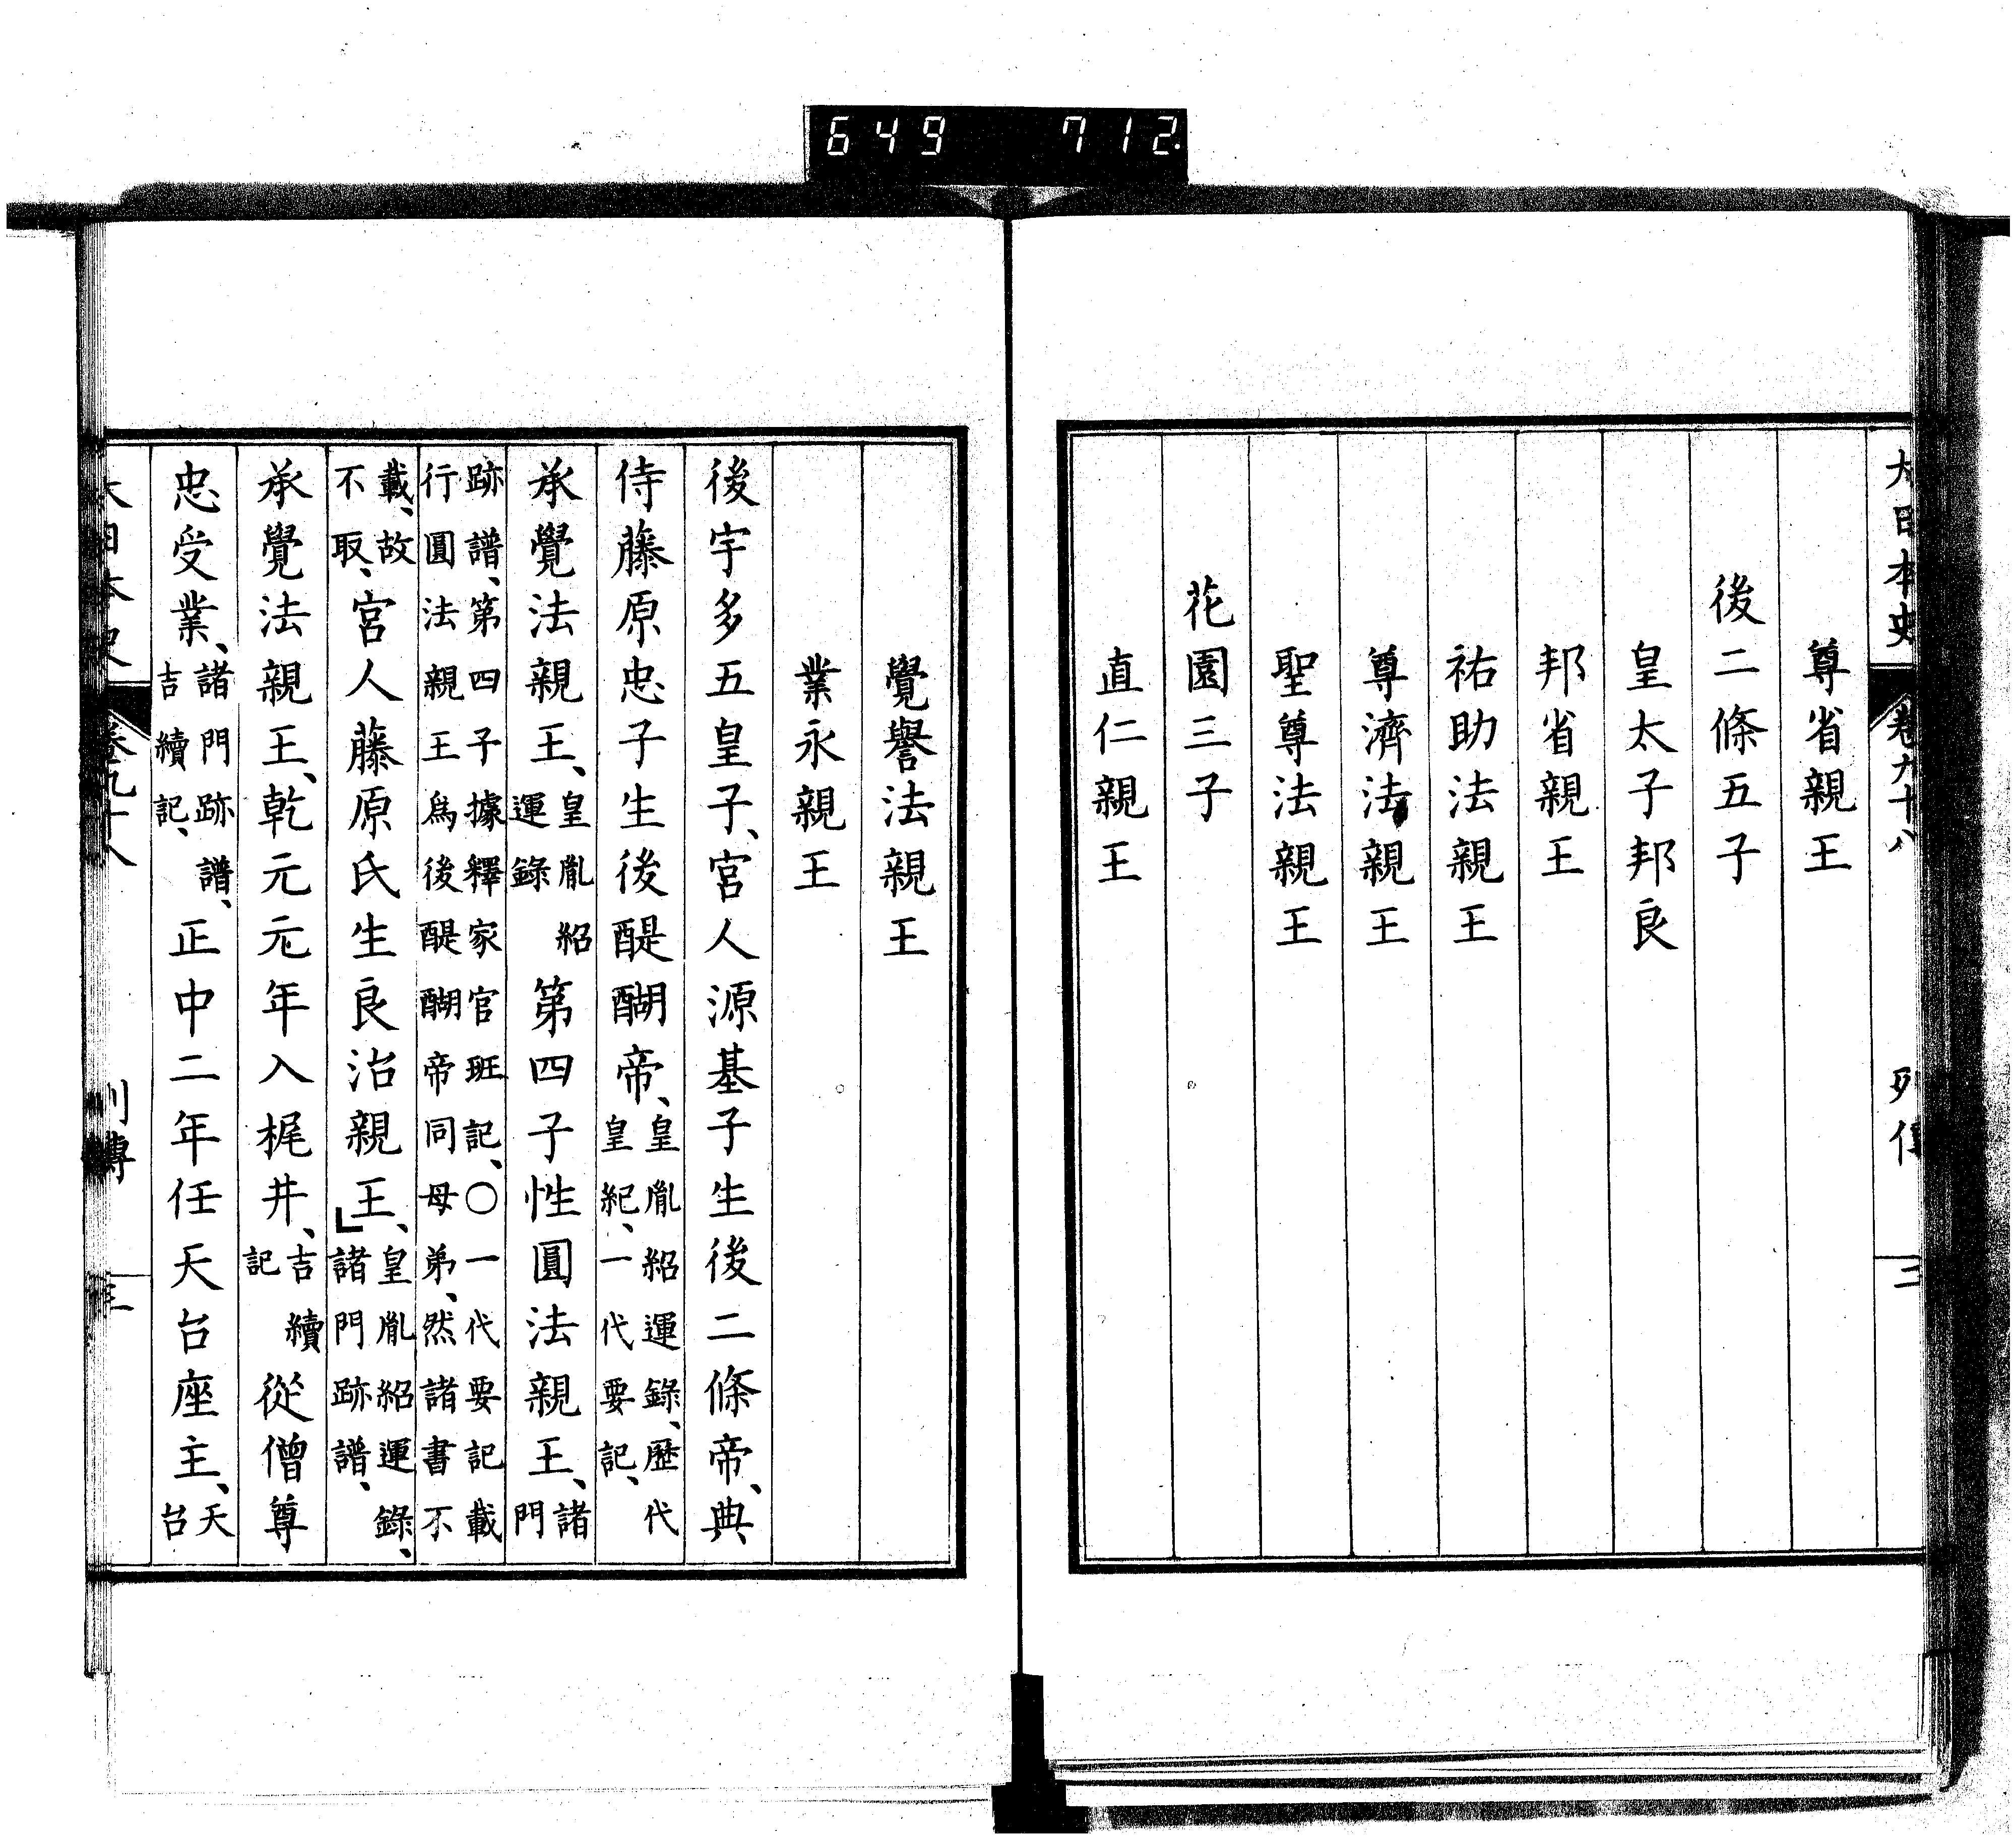 649 712.
大日本史 卷九十八 列傳 二
尊省親王
後二條五子
皇太子邦良
邦省親王
祐助法親王
尊濟法親王
聖尊法親王
花園三子
直仁親王
覺譽法親王
業永親王
後宇多五皇子、宮人源基子生後二條帝、典
侍藤原忠子生後醍醐帝、皇胤紹運錄、歷代皇紀、一代要記、
承覺法親王、皇胤紹運錄第四子性圓法親王、諸門
跡譜、第四子據釋家官班記、〇一代要記載
行圓法親王爲後醍醐帝同母弟、然諸書不
載、故不取、宮人藤原氏生良治親王、皇胤紹運錄、諸門跡譜、
承覺法親王、乾元元年入梶井、吉續記從僧尊
忠受業、諸門跡譜、吉續記、正中二年任天台座主、天台
大日本史 卷九十八 列傳 三